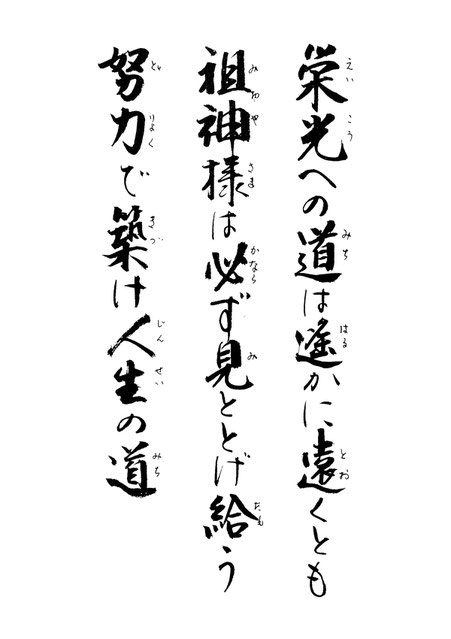 栄光への道は遥かに遠くとも
祖神様は必ず見ととげ給う
努力で築け人生の道